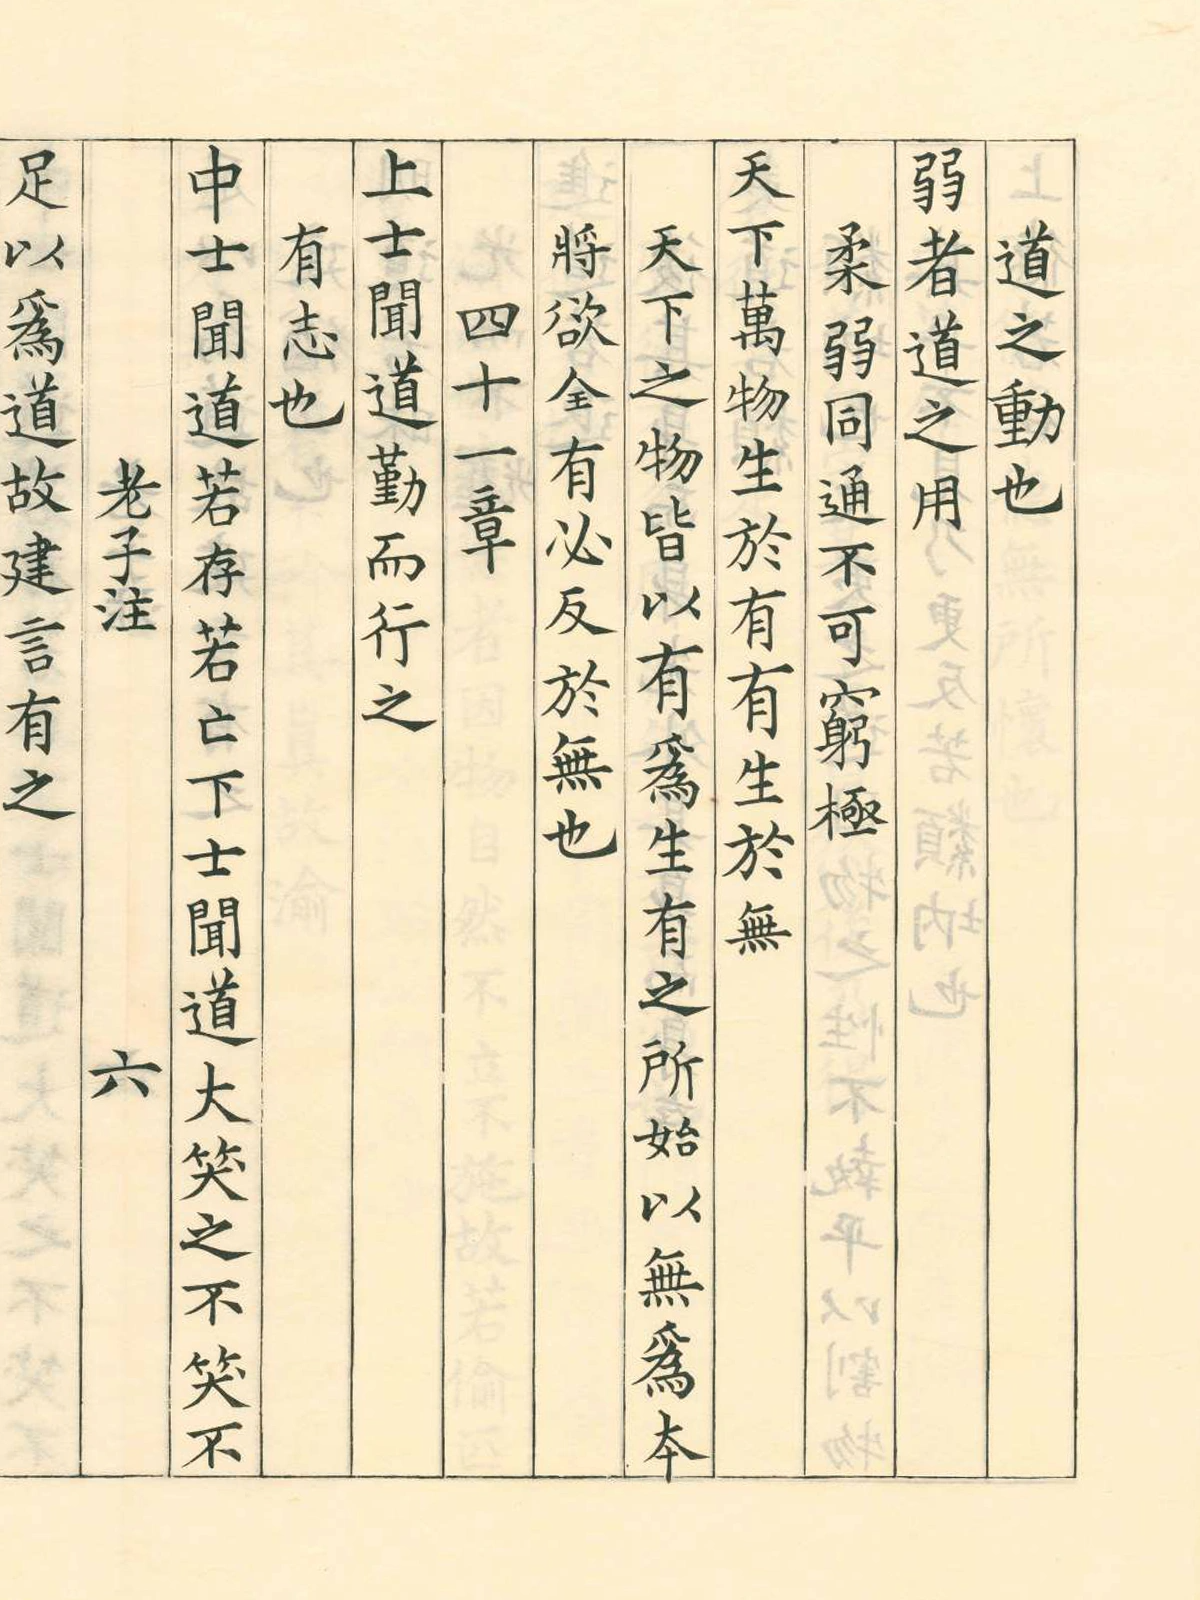 道之動也
弱者道之用
柔弱同通不可窮極
天下萬物生於有有生於無
天下之物皆以有爲生有之所始以無爲本
將欲全有必反於無也
四十一章
上士聞道勤而行之
有志也
中士聞道若存若亡下士聞道大笑之不笑不
老子注 六
足以爲道故建言有之